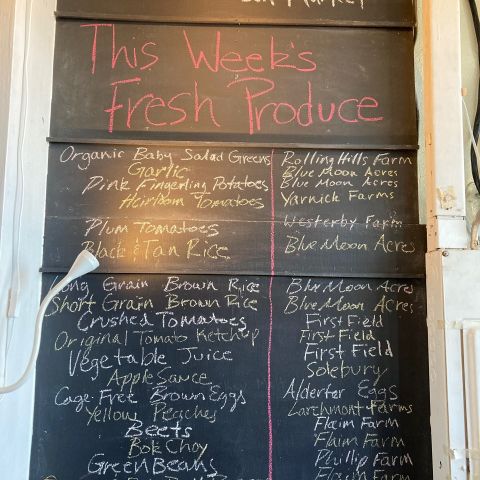 Market
This Week's
Fresh Produce
Organic Baby Salad Greens Rolling Hills Farm
Garlic Blue Moon Acres
Pink Fingerling Potatoes Blue Moon Acres
Heirloom Tomatoes Yarnick Farms
Plum Tomatoes Westerby Farm
Black & Tan Rice Blue Moon Acres
Long Grain Brown Rice Blue Moon Acres
Short Grain Brown Rice Blue Moon Acres
Crushed Tomatoes First Field
Original Tomato Ketchup First Field
Vegetable Juice First Field
Apple Sauce Solebury
Cage-Free Brown Eggs Alderfer Eggs
Yellow Peaches Larchmont Farms
Beets Flaim Farm
Bok Choy Flaim Farm
Green Beans Phillip Farm
Flaim Farm